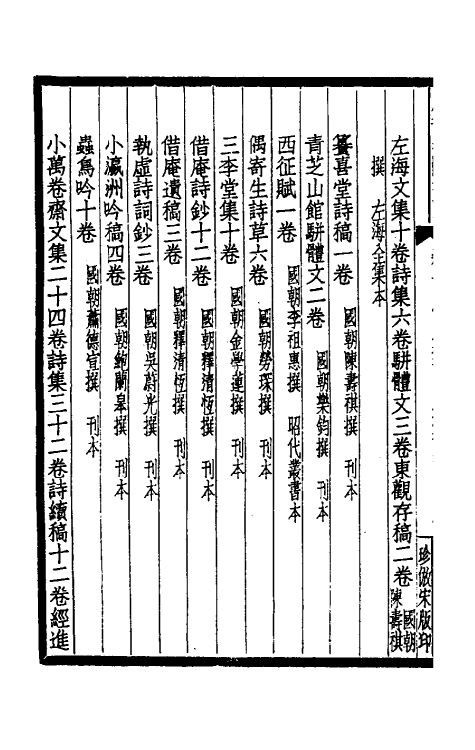 左海文集十卷詩集六卷駢體文三卷東觀存稿二卷 國朝陳壽祺
撰 左海全集本
䌓喜堂詩稿一卷 國朝陳壽祺撰 刊本
青芝山館駢體文二卷 國朝樂鈞撰 刊本
西征賦一卷 國朝李祖惠撰 昭代叢書本
偶寄生詩草六卷 國朝勞琛撰 刊本
三李堂集十卷 國朝金學蓮撰 刊本
借庵詩鈔十二卷 國朝釋清恆撰 刊本
借庵遺稿三卷 國朝釋清恆撰 刊本
執虛詩詞鈔三卷 國朝吳蔚光撰 刊本
小瀛洲吟稿四卷 國朝鮑蘭皋撰 刊本
蟲鳥吟十卷 國朝蕭德宣撰 刊本
小萬卷齋文集二十四卷詩集三十二卷詩續稿十二卷經進
珍倣宋版印